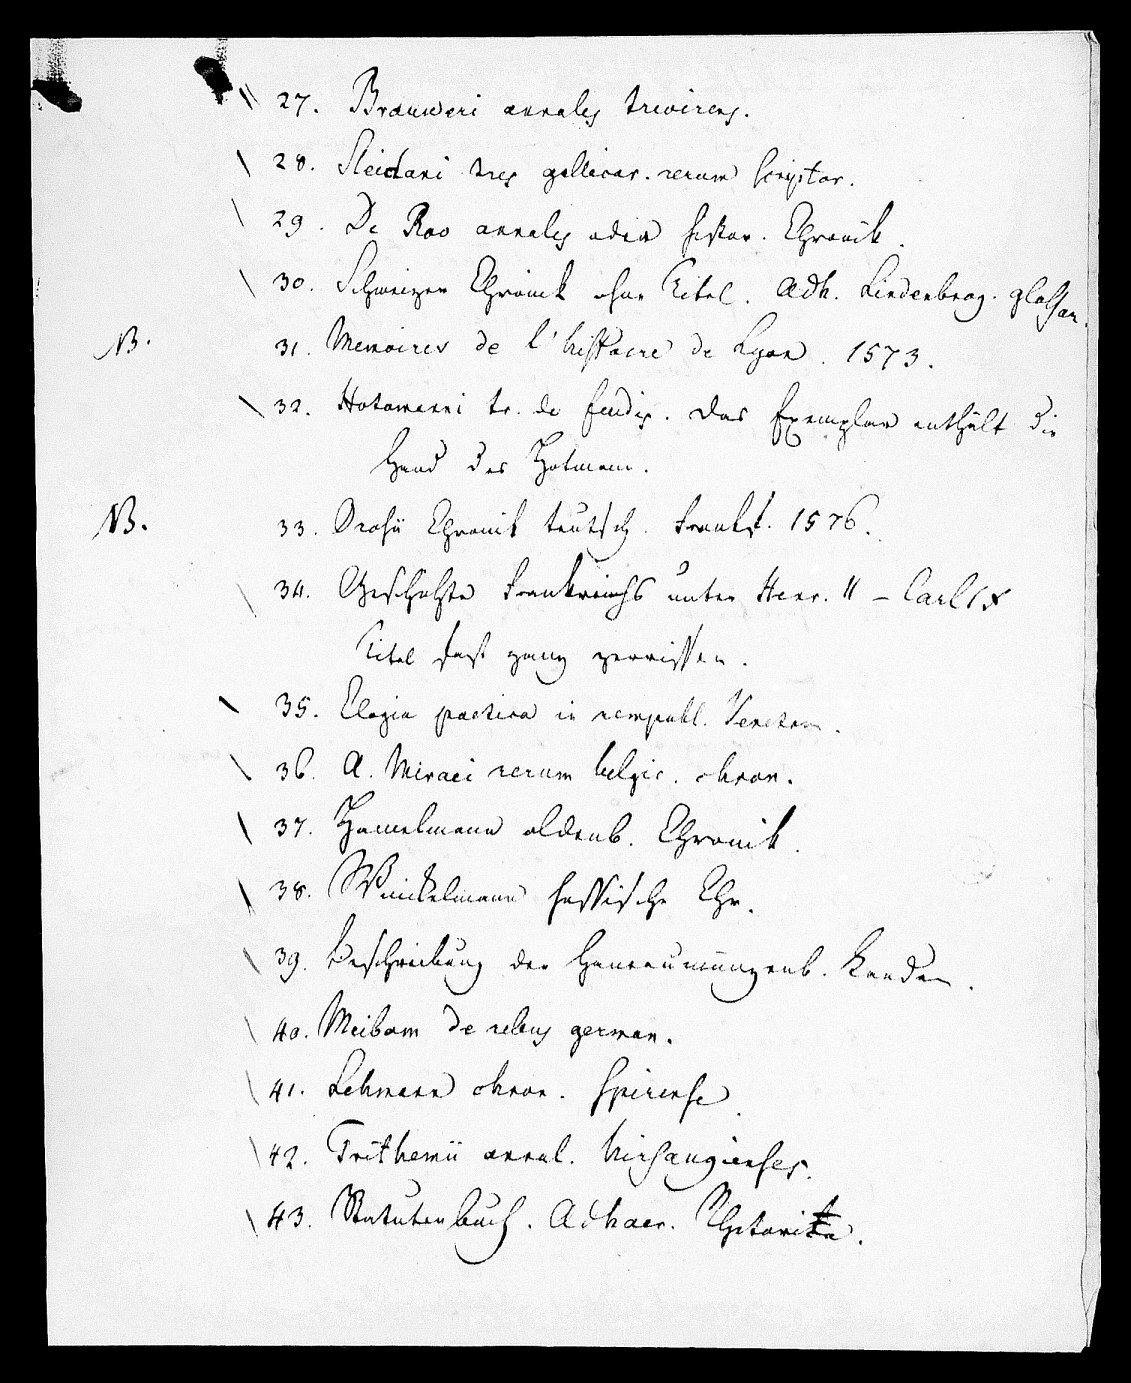 27. Brouweri annales trevirens.
28. Sleidani tres gallicar. rerum scriptor.
29. De Roo annales oder histor. Chronik.
30. Schweizer Chronick ohne Titel. Adh. Lindenbrog. glossar.
NB. 31. Memoires de l'histoire de Lyon. 1573.
32. Hotomanni tr. de feudis. Das Exemplar enthält die
Hand des Hotmann.
NB. 33. Orosii Chronik teutsch. Frankf. 1576.
34. Geschichte Frankreichs unter Henr. II – Carl IX
Titel fast ganz zerrissen.
35. Elogia poetica in rempubl. Venetam.
36. A. Miraei rerum belgic. chron.
37. Hamelmann oldenb. Chronik.
38. Winckelmann hessische Chr.
39. Beschreibung der Hanau-münzenb. Landen.
40. Meibom de rebus german.
41. Lehmann chron. Spirense
42. Trithemii annal. hirsaugienses.
43. Statutenbuch. Adhaer. Rhetorika.